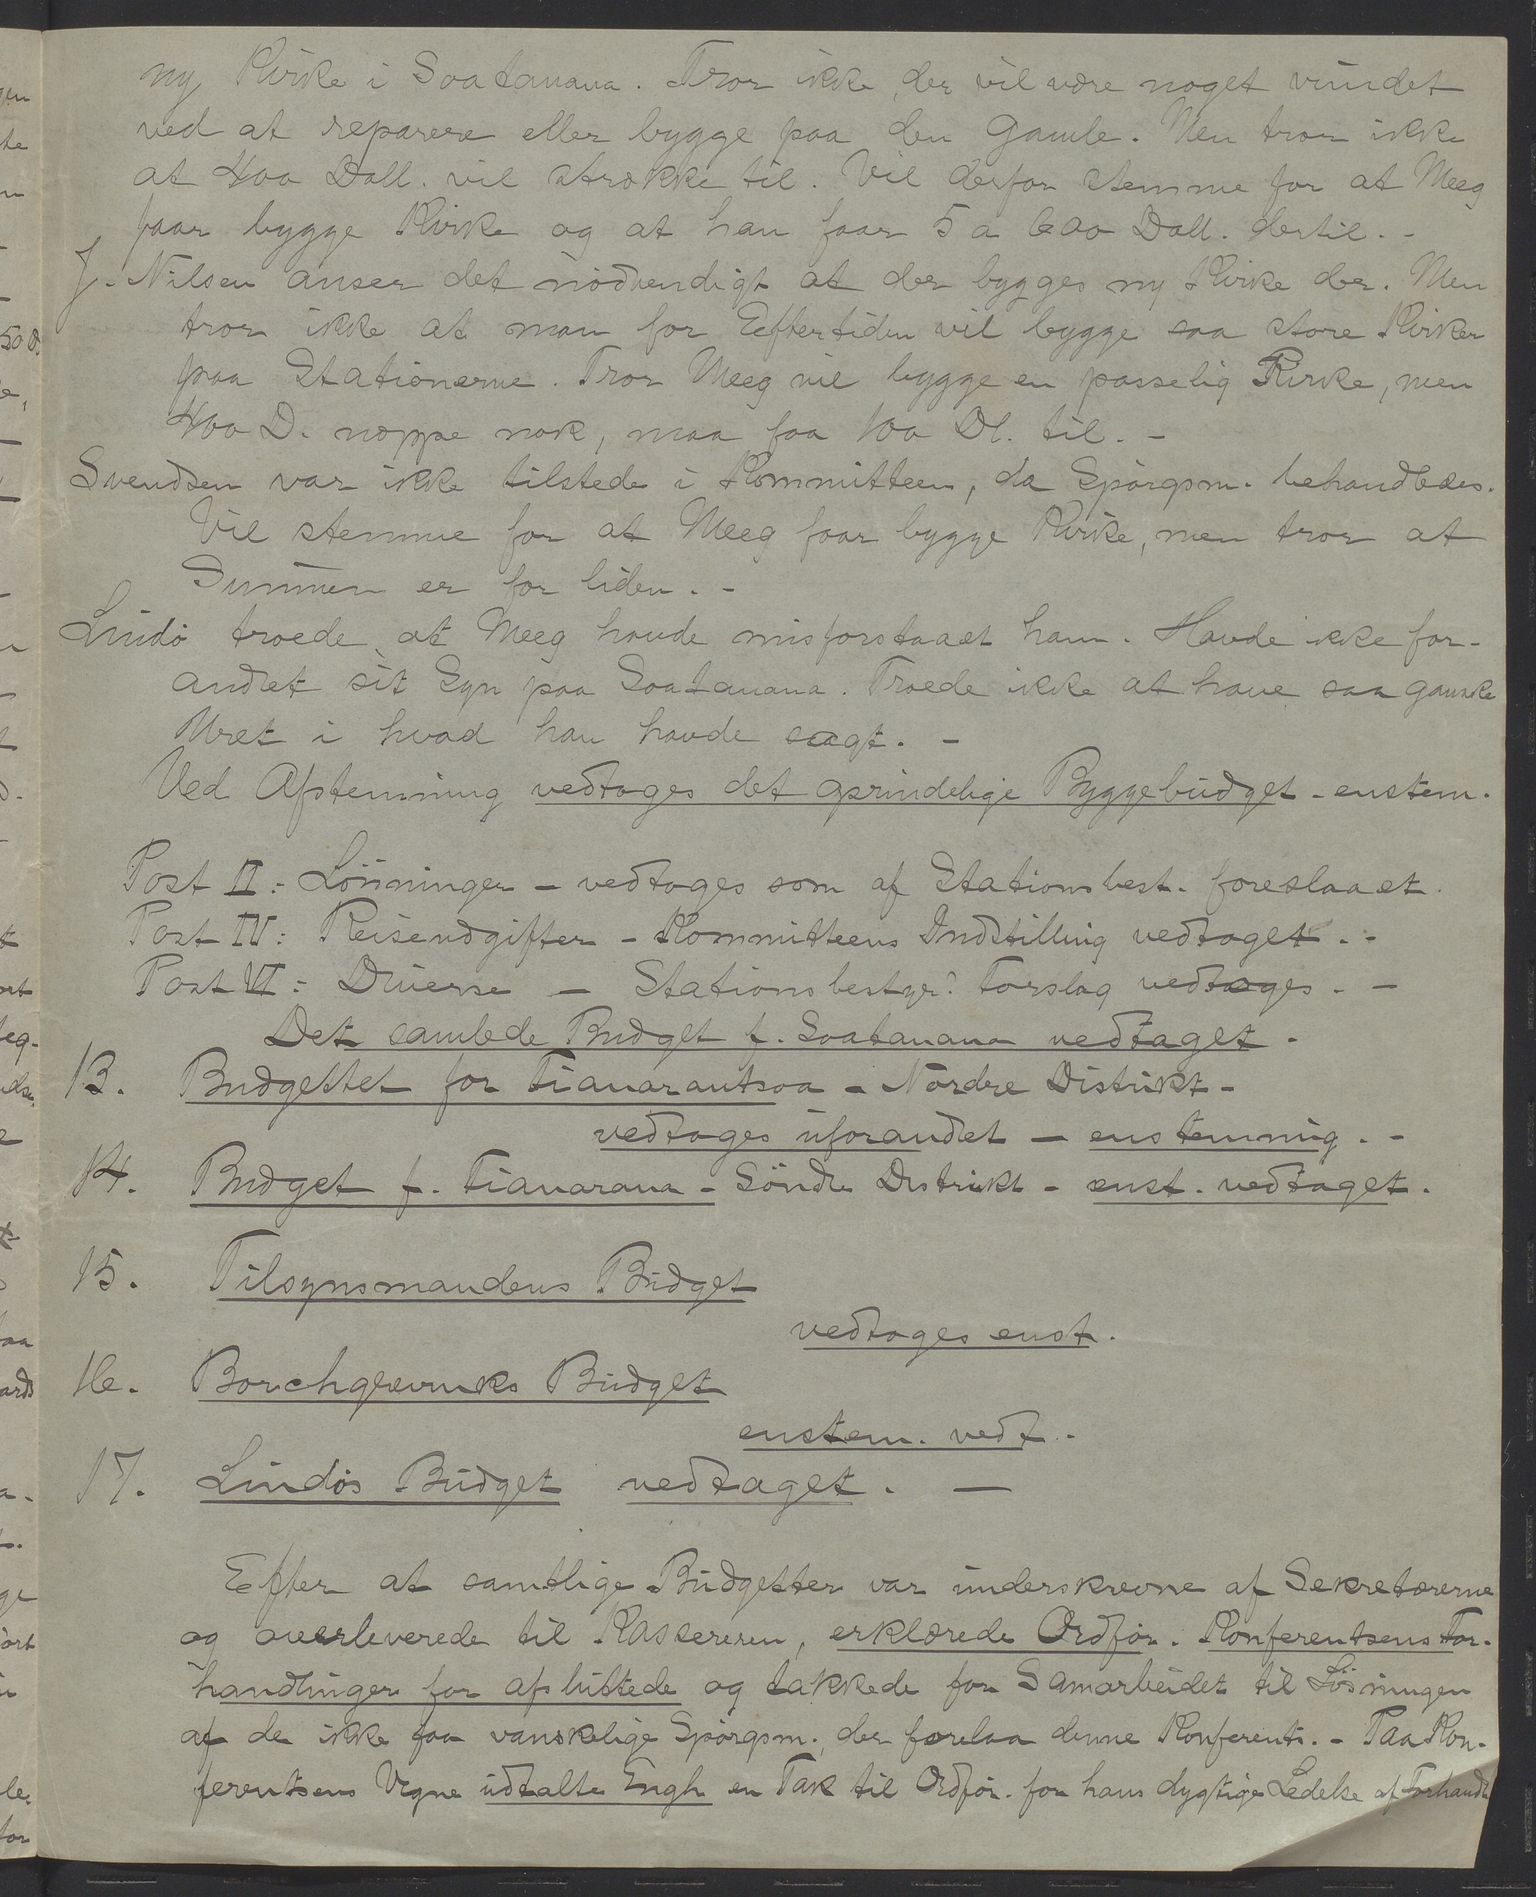 ny Kirke i Soatanana. Tror ikke, der vil være noget vundet
ved at reparere eller bygge paa den Gamle. Men tror ikke
at 400 Doll. vil strække til. Vil derfor stemme for at Meeg
faar bygge Kirke og at han faar 5 a 600 Doll. dertil. -
J. Nilsen anser det nödvendigt at der bygges ny Kirke der. Men
tror ikke at man for Eeftertiden vil bygge saa store Kirker
paa Stationerne. Tror Meeg vil bygge en passelig Kirke, men
400 D. næppe nok, maa faa 100 Dl. til. -
Svendsen var ikke tilstede i Kommitteen, da Spörgsm. behandledes.
Vil stemme for at Meeg faar bygge Kirke, men tror at
Summen er for liden. -
Lindö troede, at Meeg havde misforstaaet ham. Havde ikke for-
andret sit Syn paa Soatanana. Troede ikke at have saa ganske
Uret i hvad han havde sagt. -
Ved Afstemning vedtoges det oprindelige Byggebudget - enstem.
Post II: Lönninger - vedtoges som af Stationsbest. foreslaaet.
Post IV: Reiseudgifter - Kommitteens Indstilling vedtaget. -
Post VI: Diverse - Stationsbestyr: Forslag vedtoges. -
Det samlede Budget f. Soatanana vedtaget.
13. Budgettet for Fianarantsoa - Nordre Distrikt -
vedtoges uforandret - enstemmig. -
14. Budget f. Fianarana - Söndre Distrikt - enst. vedtaget.
15. Tilsynsmandens Budget
vedtoges enst.
16. Borchgrevinks Budget
enstem. vedt.
17. Lindös Budget vedtaget. -
Efter at samtlige Budgetter var underskrevne af Sekretærerne
og overleverede til Kassereren, erklærede Ordför. Konferentsens For-
handlinger for afsluttede og takkede for Samarbeidet til Lösningen
af de ikke faa vanskelige Spörgsm., der forelaa denne Konferents. - Paa Kon-
ferentsens Vegne udtalte Engh en Tak til Ordför. for hans dygtige Ledelse af Forhandl